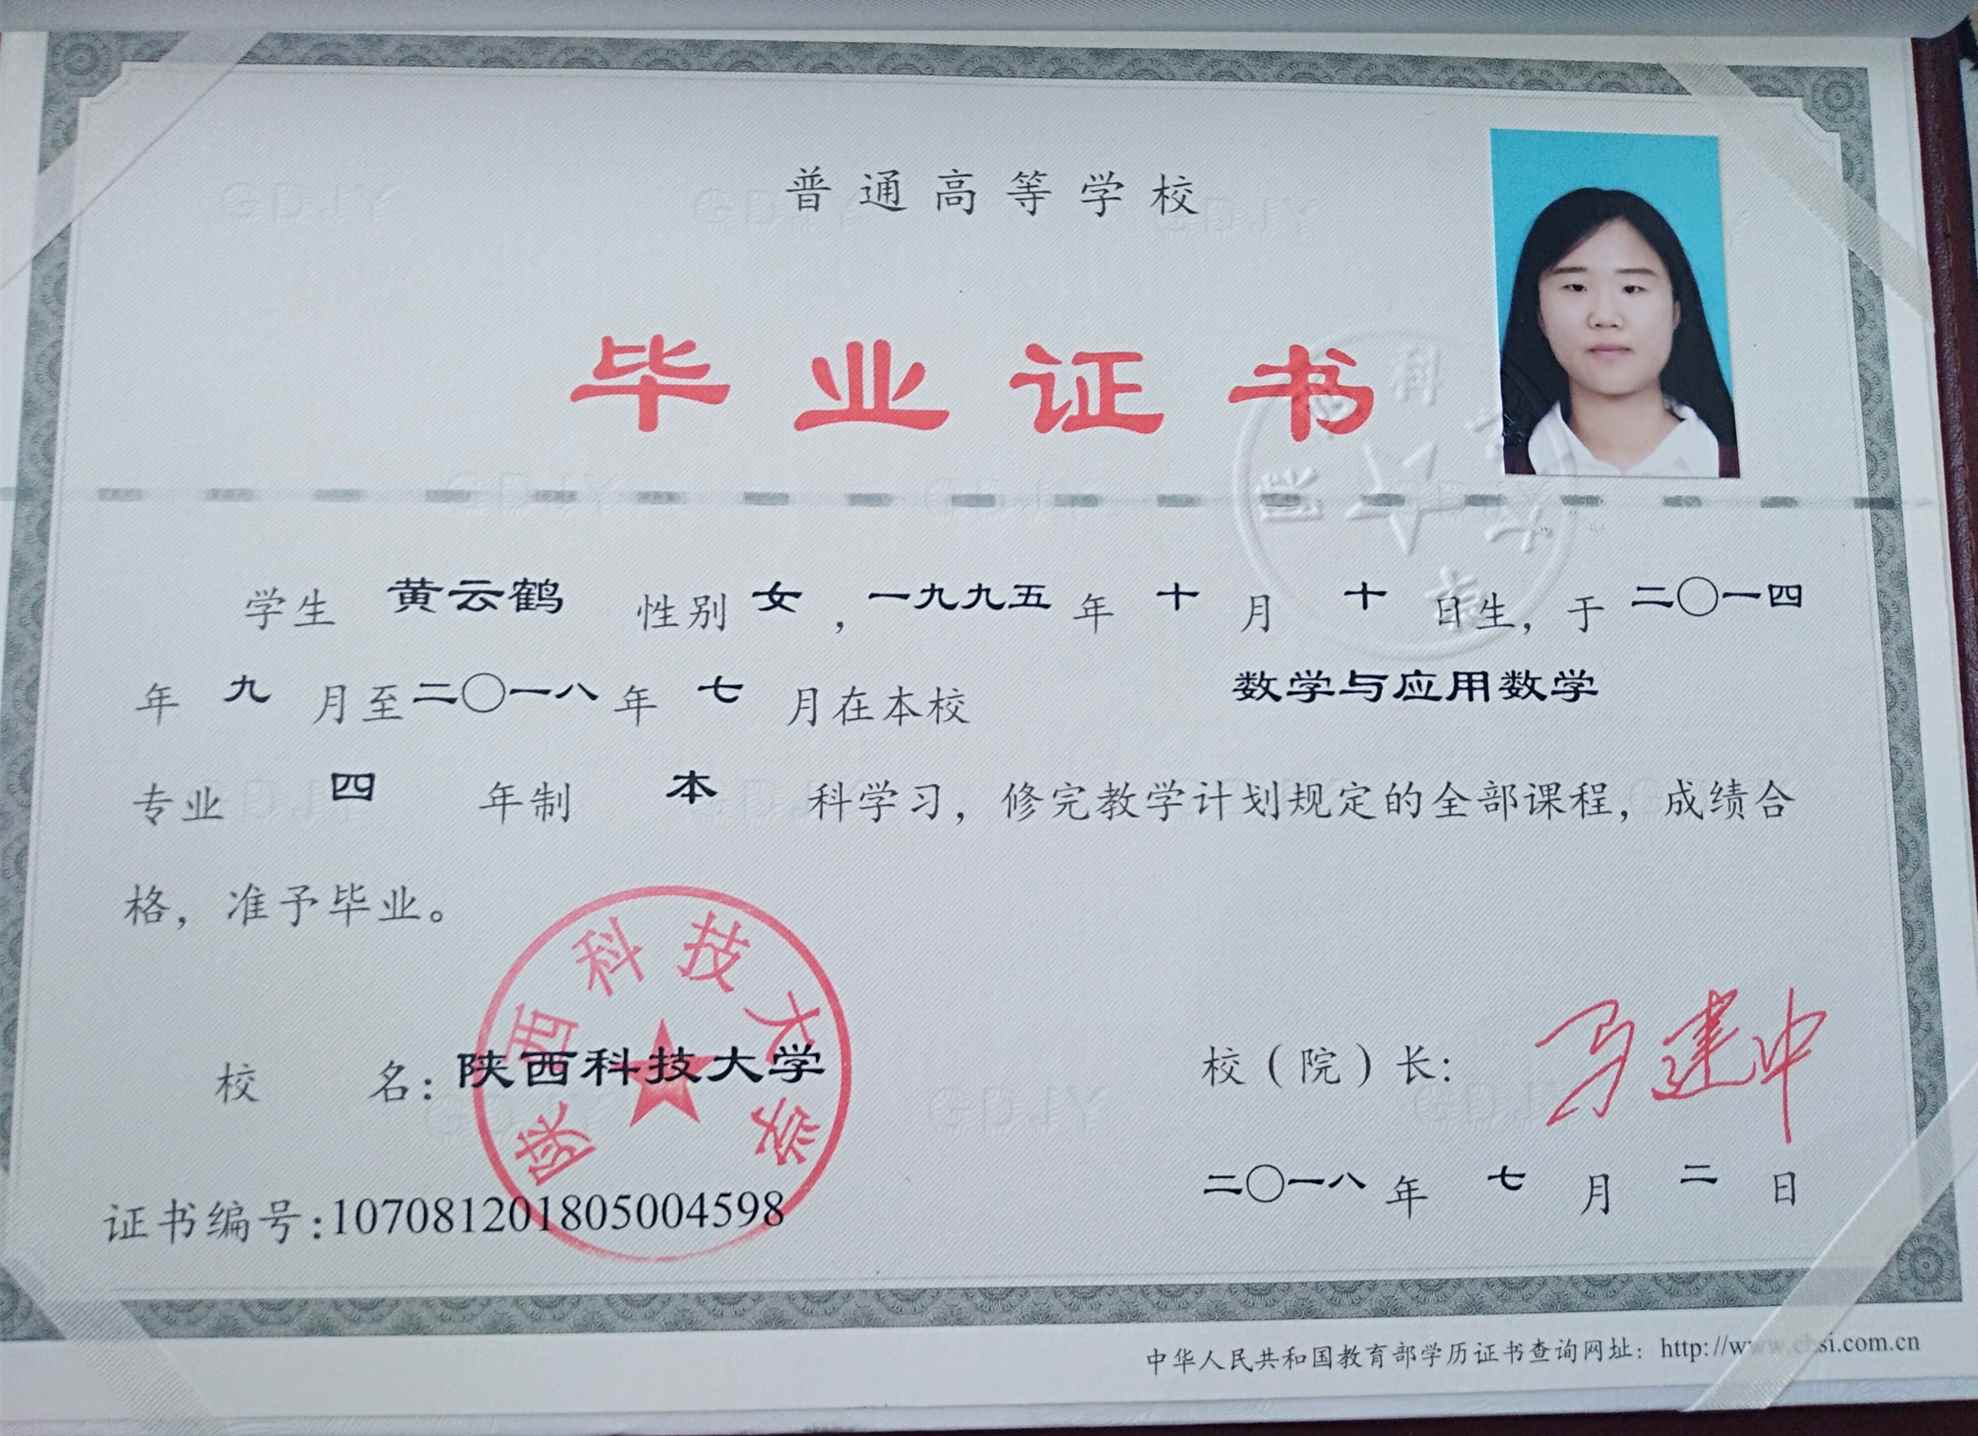 普通高等学校
毕业证书
学生 黄云鹤 性别 女，一九九五年 十 月 十 日生，于 二〇一四
年 九 月至二〇一八年 七 月在本校 数学与应用数学
专业 四 年制 本 科学习，修完教学计划规定的全部课程，成绩合
格，准予毕业。
陕西科技大学
校 名：陕西科技大学
校（院）长：马建中
证书编号：107081201805004598
二〇一八年 七 月 二 日
中华人民共和国教育部学历证书查询网址：http://www.chsi.com.cn